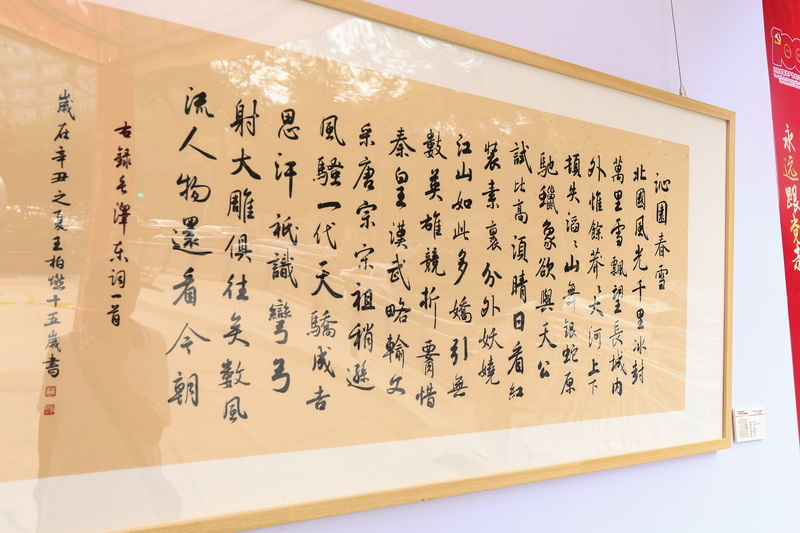 沁園春雪
北國風光千里冰封
萬里雪飄望長城内
外惟餘莽〻大河上下
頓失滔〻山舞銀蛇原
馳蠟象欲與天公
試比高須晴日看紅
裝素裹分外妖嬈
江山如此多嬌引無
數英雄競折腰惜
秦皇漢武略輸文
采唐宗宋祖稍遜
風騷一代天驕成吉
思汗祇識彎弓
射大雕俱往矣數風
流人物還看今朝
右錄毛澤東词一首
歲在辛丑之夏王柏燃十五歲書
100
永远跟党走